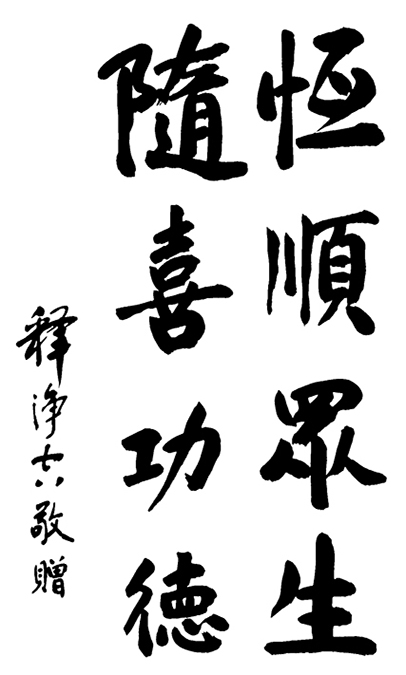 恒順眾生
隨喜功德
釋淨空敬贈